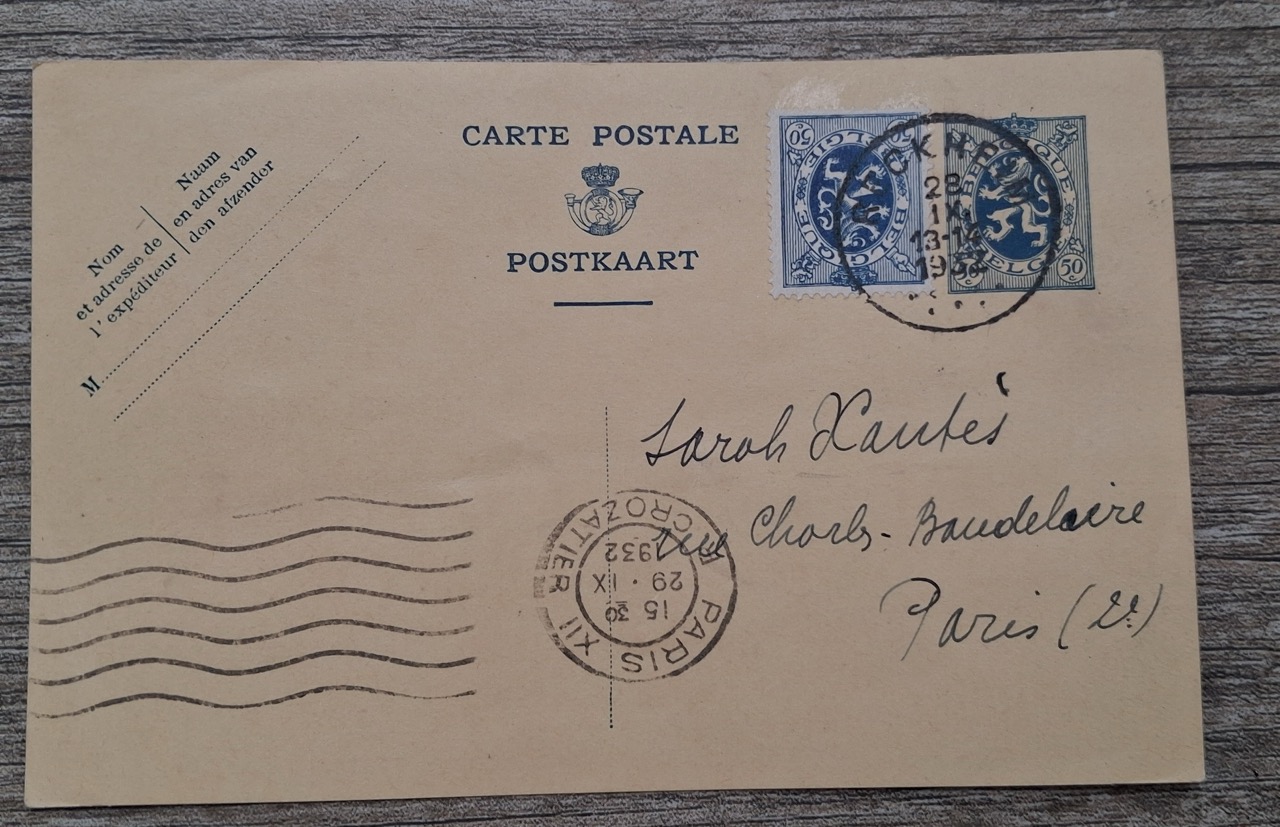 CARTE POSTALE
POSTKAART
Nom
et adresse de
l'expéditeur
Naam
en adres van
den afzender
M
50 50
BELGIE BELGIQUE
BELGIQUE
BELGIE
50 50
28
IX
13-14
1932
Sarah Xantès
rue Charles-Baudelaire
Paris (2e)
PARIS XII
R. CROZATIER
15 30
29 · IX
1932